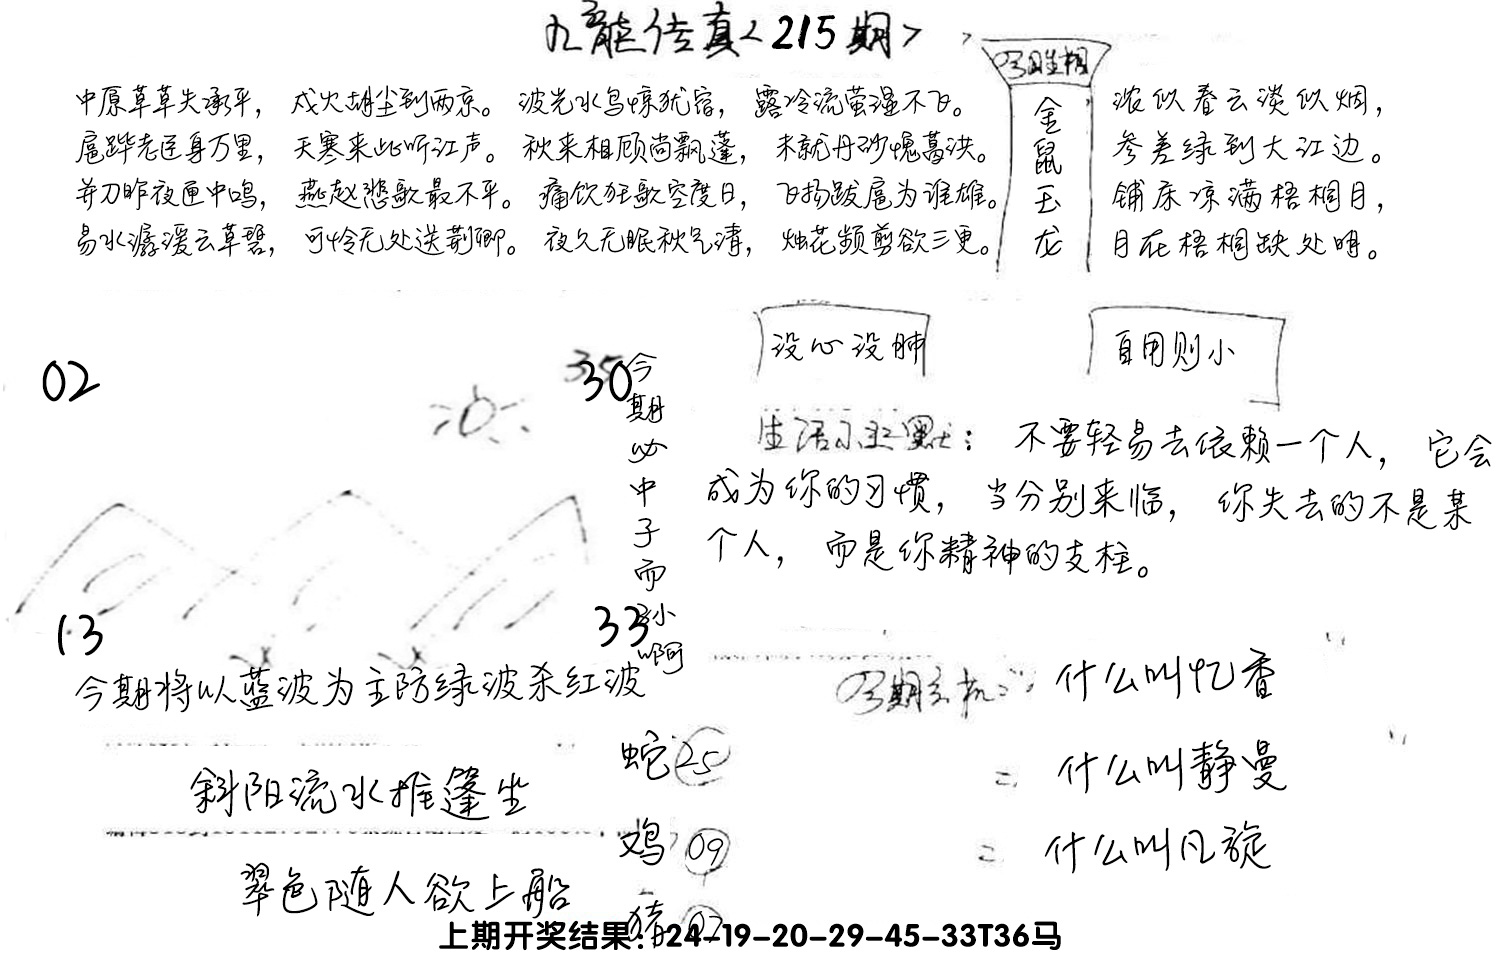 九龙传真<215期>
中原草草失承平，戍火胡尘到两京。波光水鸟惊犹宿，露冷流萤湿不飞。
扈跸老臣身万里，天寒来此听江声。秋来相顾尚飘蓬，未就丹砂愧葛洪。
并刀昨夜匣中鸣，燕赵悲歌最不平。痛饮狂歌空度日，飞扬跋扈为谁雄。
易水潺湲云草碧，可怜无处送荆卿。夜久无眠秋气清，烛花频剪欲三更。
金鼠玉龙
浓似春云淡似烟，
参差绿到大江边。
铺床凉满梧桐月，
月在梧桐缺处明。
没心没肺
自用则小
02
30
13
33
今期必中子而孙啊
生活小幽默：不要轻易去依赖一个人，它会
成为你的习惯，当分别来临，你失去的不是某
个人，而是你精神的支柱。
今期将以蓝波为主防绿波杀红波
斜阳流水推篷坐
翠色随人欲上船
蛇25
鸡09
猪
今期玄机：什么叫忆香
= 什么叫静曼
= 什么叫凡旋
上期开奖结果：24-19-20-29-45-33T36马